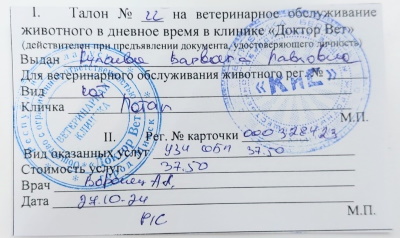 I. Талон № 22 на ветеринарное обслуживание
животного в дневное время в клинике «Доктор Вет»
(действителен при предъявлении документа, удостоверяющего личность)
Выдан Варвара Павловна
Для ветеринарного обслуживания животного рег. №
Вид кот
Кличка Потап
М.П.
II. Рег. № карточки 000378423
Вид оказанных услуг УЗИ ОБП 37.50
Стоимость услуг 37.50
Врач
Дата 27.10.24
М.П.
ВЕТЕРИНАРНАЯ КЛИНИКА
Доктор Вет